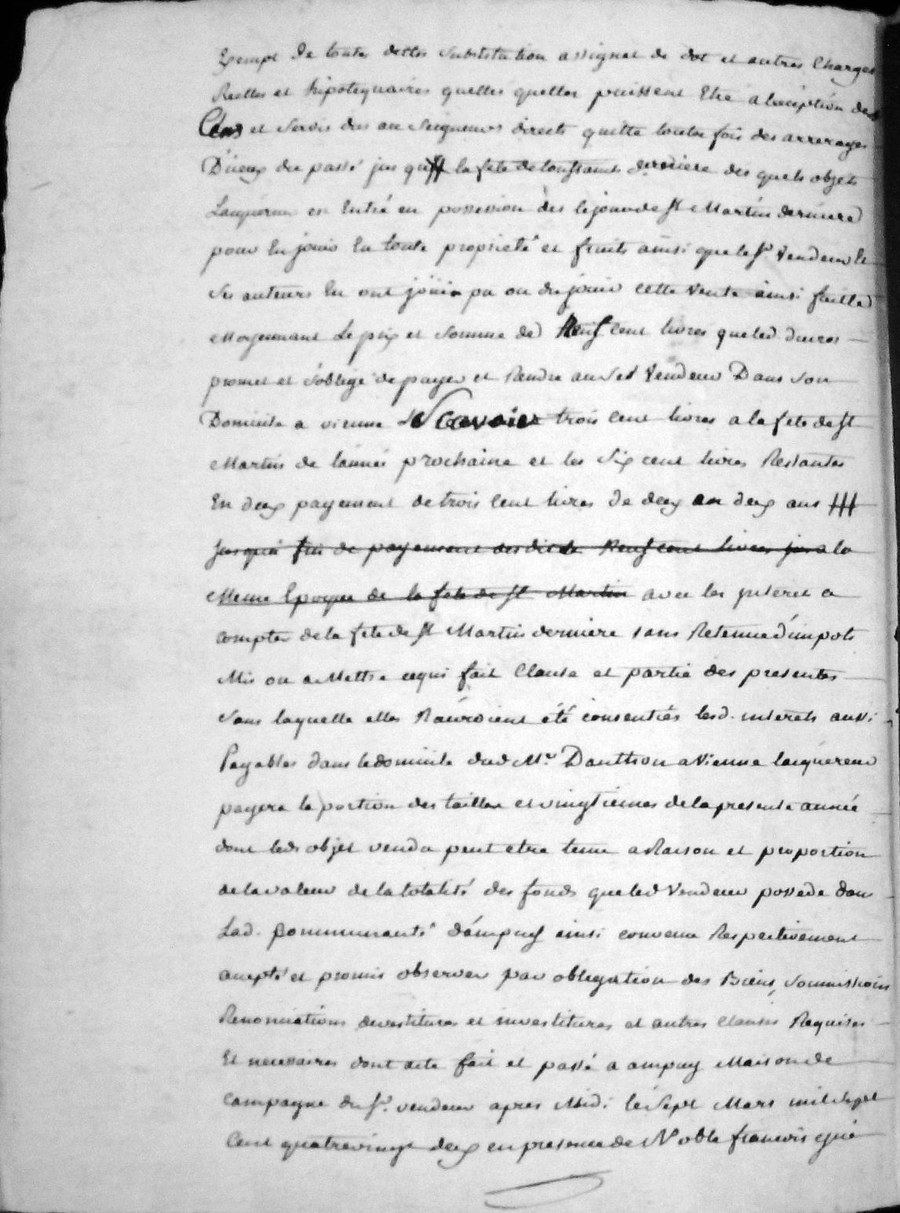 Exempt de toutes dettes substitution assignat de dot et autres Charges
Reelles et hipotequaires quelles quelles puissent Etre a lexception de
Cens et servis dus au Seigneurs directs quitte toutes fois des arrerages
D'iceux du passé jus qua la fete de toussaint derniere des quels objets
Laquereur en Entré en possession dès le jour de st Martin derniere
pour En jouir En toute proprieté et fruits ainsi que le sr Vendeur Et
Ses auteurs En ont joüi pu ou du jouir cette Vente ainsi faitte
Moyennant Le prix et somme de Neuf cent livres que led
promet et s'oblige de payer et Rendre aud sr Vendeur Dans son
Domicile a vienne Scavoir trois cent livres a la fete de st
Martin de lannée prochaine et les Six cent livres Restantes
En deux payement de trois Cent livres de deux en deux ans
jusqua fin de payement desdittes Neuf cent livres a la
Meme Epoque de la fete de st Martin avec les jnteret a
compter de la fete de st Martin derniere sans Retenue d'impots
Mis ou a Mettre ce qui fait Clause et partie des presentes
sans laquelle elles N'auroient été consenties lesd. interets aussi
Payables dans le domicile dud Mr. Danthon a Vienne laquereur
payera la portion des tailles et vingtiemes de la presente année
dont leds objet vendu peut etre tenu a Raison et proportion
de la valeur de la totalité des fonds que led Vendeur possede dans
Lad. Communauté d'ampuy ainsi convenu Respectivement
acepté et promis observer par obligation des Biens, soumissions
Renonciations devestitures et investitures et autres clauses Requises
Et necessaires dont acte fait et passé a ampuy Maison de
Campagne du sr. vendeur apres Midi le sept Mars mil sept
Cent quatrevingt deux en presence de Noble francois